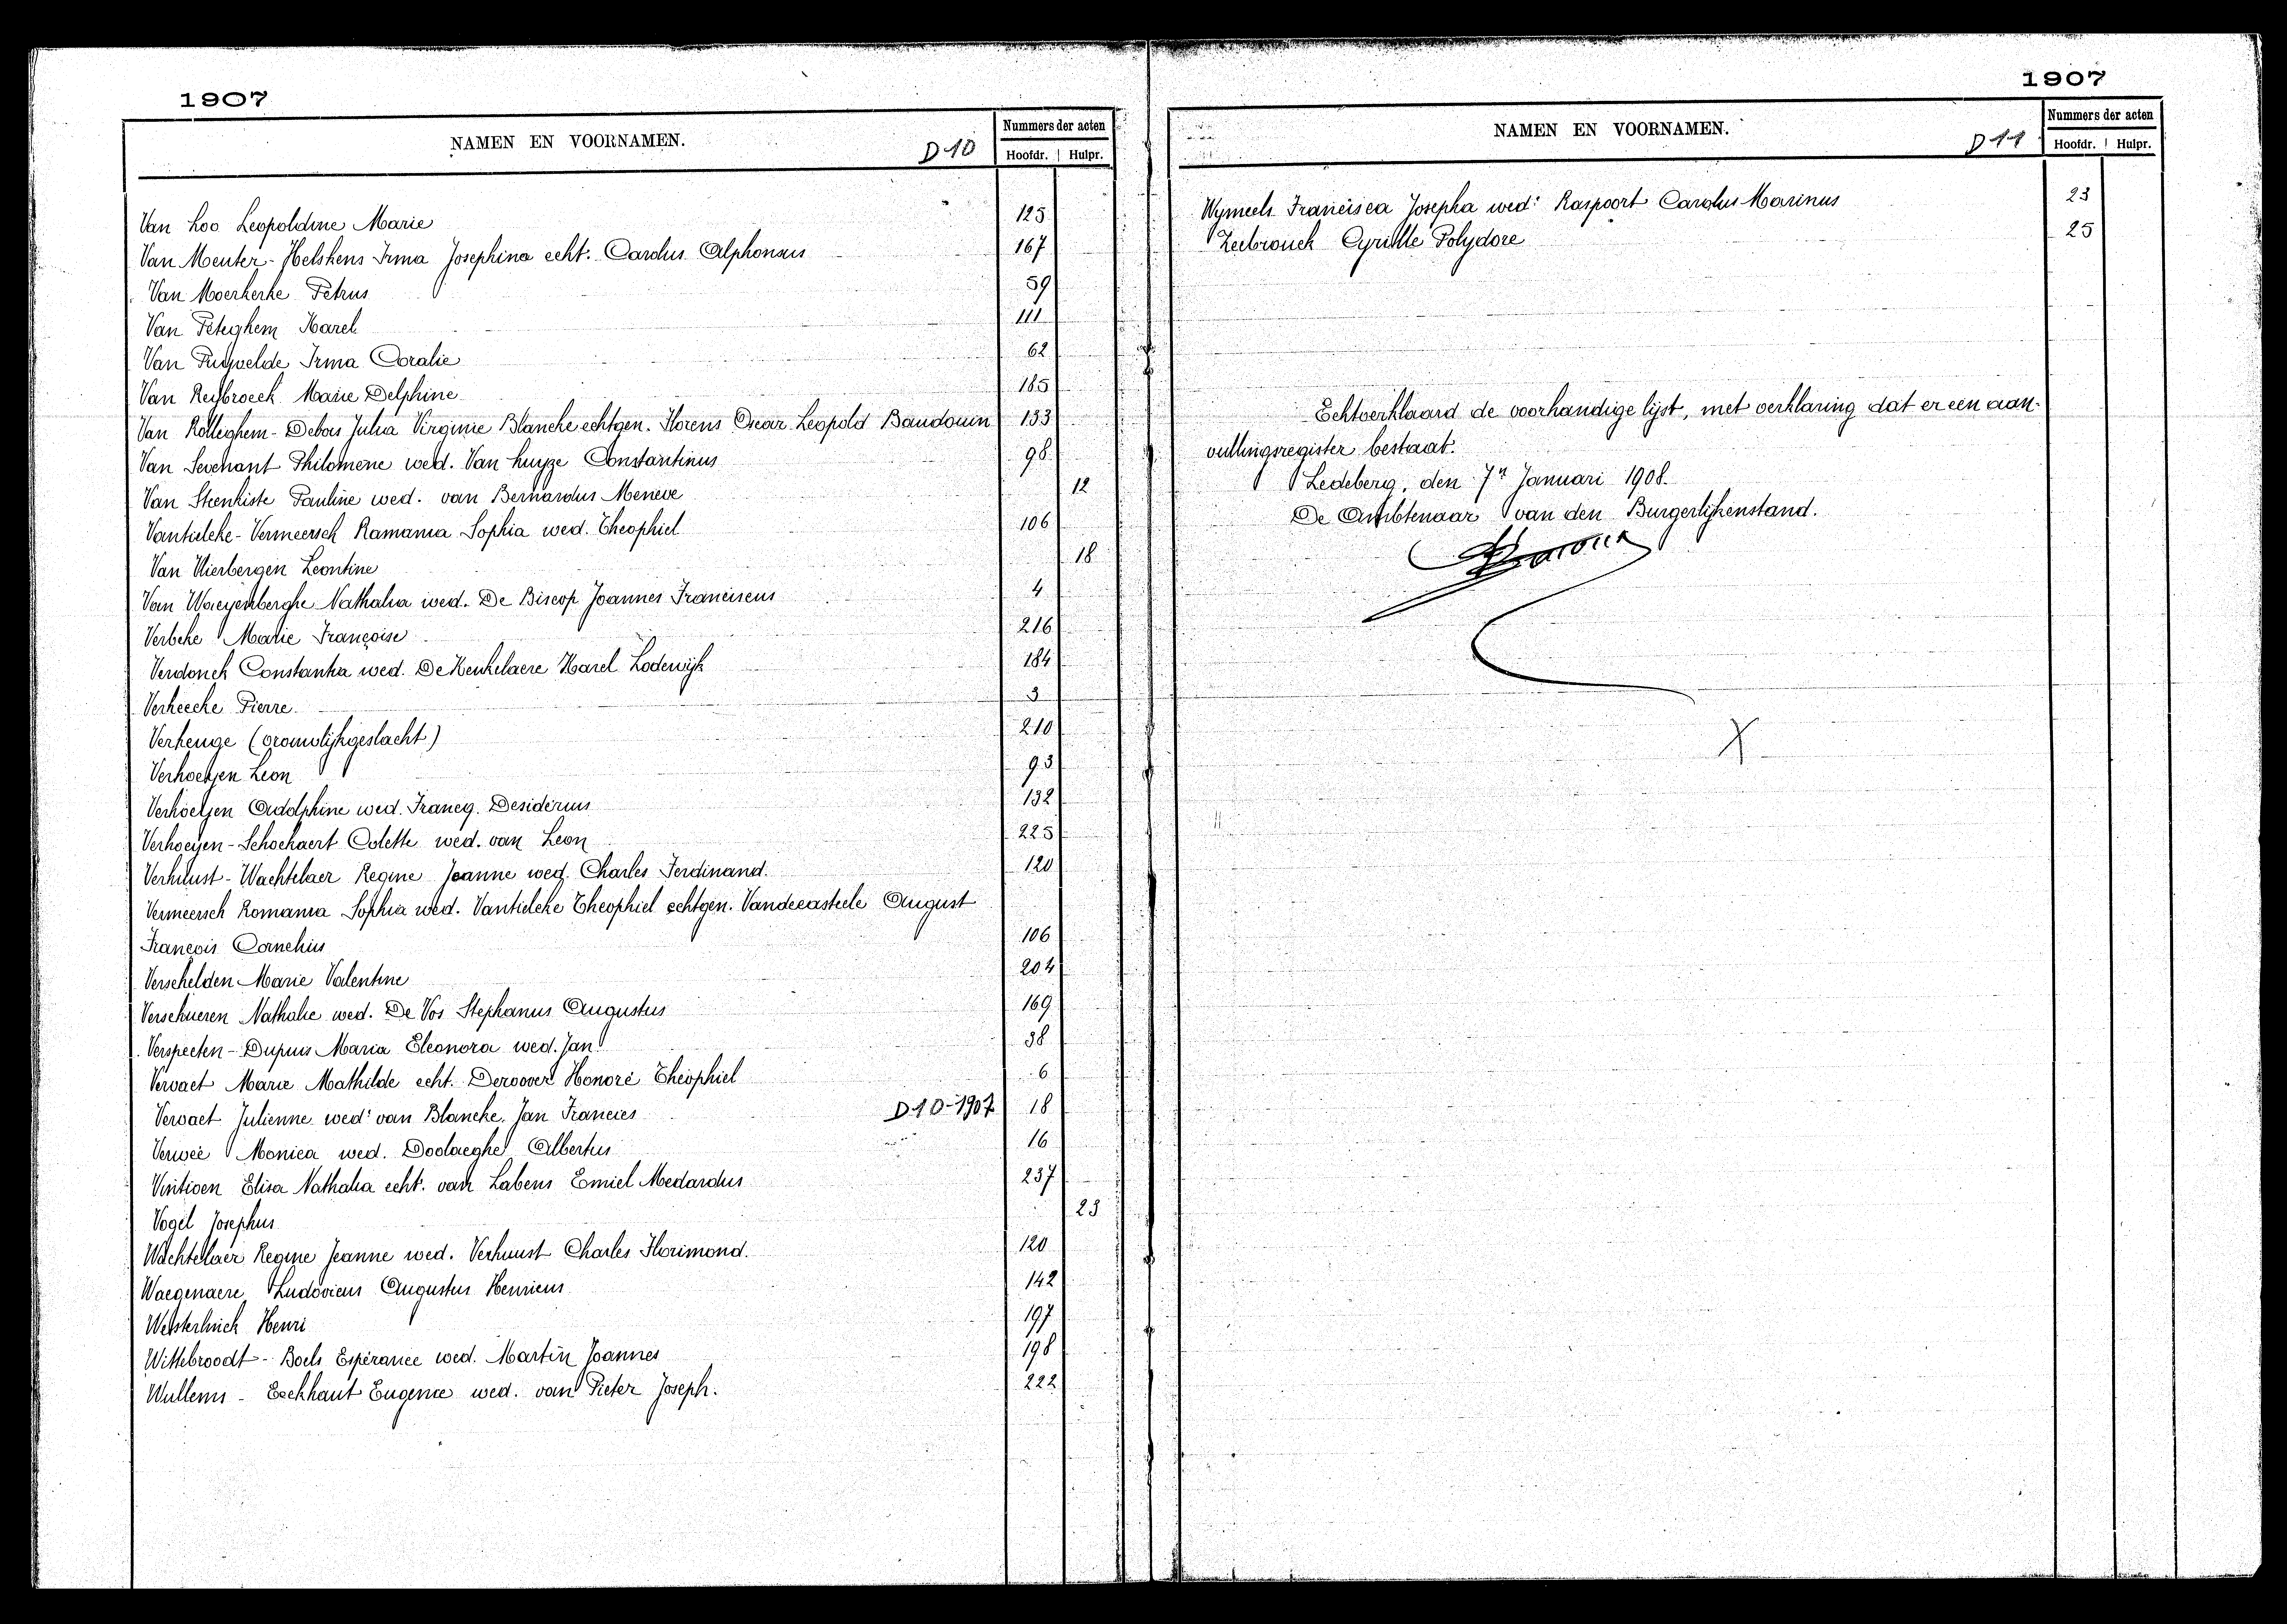 1907
NAMEN EN VOORNAMEN.
D10
Nummers der acten
Hoofdr. Hulpr.
Van Loo Leopoldine Marie 125
Van Meuter-Helskens Irma Josephina echt. Carolus Alphonsus 167
Van Moerkerke Petrus 59
Van Peteghem Karel 111
Van Puyvelde Irma Coralie 62
Van Reybroeck Marie Delphine 185
Van Rolleghem-Debois Julia Virginie Blanche echtgen. Florens Oscar Leopold Baudouin 133
Van Sevenant Philomene wed. Van huyze Constantinus 98
Van Steenkiste Pauline wed. van Bernardus Meneve 12
Vantieleke-Vermeersch Ramania Sophia wed. Theophiel 106
Van Vlierbergen Leontine 18
Van Waeyenberghe Nathalia wed. De Biscop Joannes Franciscus 4
Verbeke Marie Françoise 216
Verdonck Constantia wed. De Keukelaere Karel Lodewijk 184
Verheecke Pierre 3
Verhenge (vrouwlijkgeslacht) 210
Verhoeyen Leon 93
Verhoeyen Oudolphine wed. Francq Desiderius 132
Verhoeyen-Schockaert Colette wed. van Leon 225
Verhulst-Wachtelaer Regine Jeanne wed. Charles Ferdinand. 120
Vermeersch Romania Sophia wed. Vantieleke Theophiel echtgen. Vandecasteele August
François Cornelius 106
Verschelden Marie Valentine 204
Verschueren Nathalie wed. De Vos Stephanus Augustus 169
Verspeeten-Dupuis Maria Eleonora wed. Jan 38
Vervaet Marie Mathilde echt. Deroover Honoré Théophiel 6
Vervaet Julienne wed. van Blancke Jan Francies D10-1907 18
Verweé Monica wed. Doolaeghe Albertus 16
Vintioen Elisa Nathalia echt. van Labens Emiel Medardus 237
Vogel Josephus 23
Wachtelaer Regine Jeanne wed. Verhuust Charles Florimond. 120
Waegenaere Ludovicus Augustus Henricus 142
Westerlinck Henri 197
Wittebroodt-Boels Espérance wed. Martin Joannes 198
Wullems-Eeckhaut Eugenie wed. van Pieter Joseph. 222
1907
NAMEN EN VOORNAMEN.
D11
Nummers der acten
Hoofdr. Hulpr.
Wymeels Francisca Josepha wed. Raspoort Carolus Marinus 23
Zeebrouck Cyrille Polydore 25
Echtverklaard de voorhandige lijst, met verklaring dat er een aan-
vullingsregister bestaat.
Ledeberg, den 7n Januari 1908.
De Ambtenaar van den Burgerlijkenstand.
X